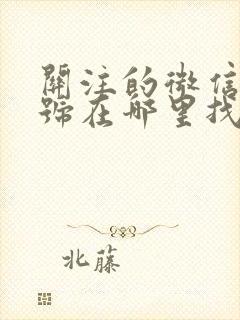 關注的微信
號在哪里找
北藤